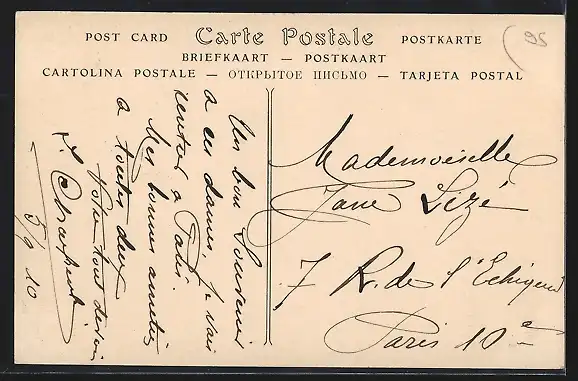 POST CARD Carte Postale POSTKARTE
BRIEFKAART — POSTKAART
CARTOLINA POSTALE — ОТКРЫТОЕ ПИСЬМО — TARJETA POSTAL
95
Un bon Souvenir
a ces dames, je vais
rentrer a Paris.
Mes bonnes amitiés
a toutes deux
Votre tout dévoué
5/9 10
Mademoiselle
Jane Lizé
7 R. de l'Echiquier
Paris 10e